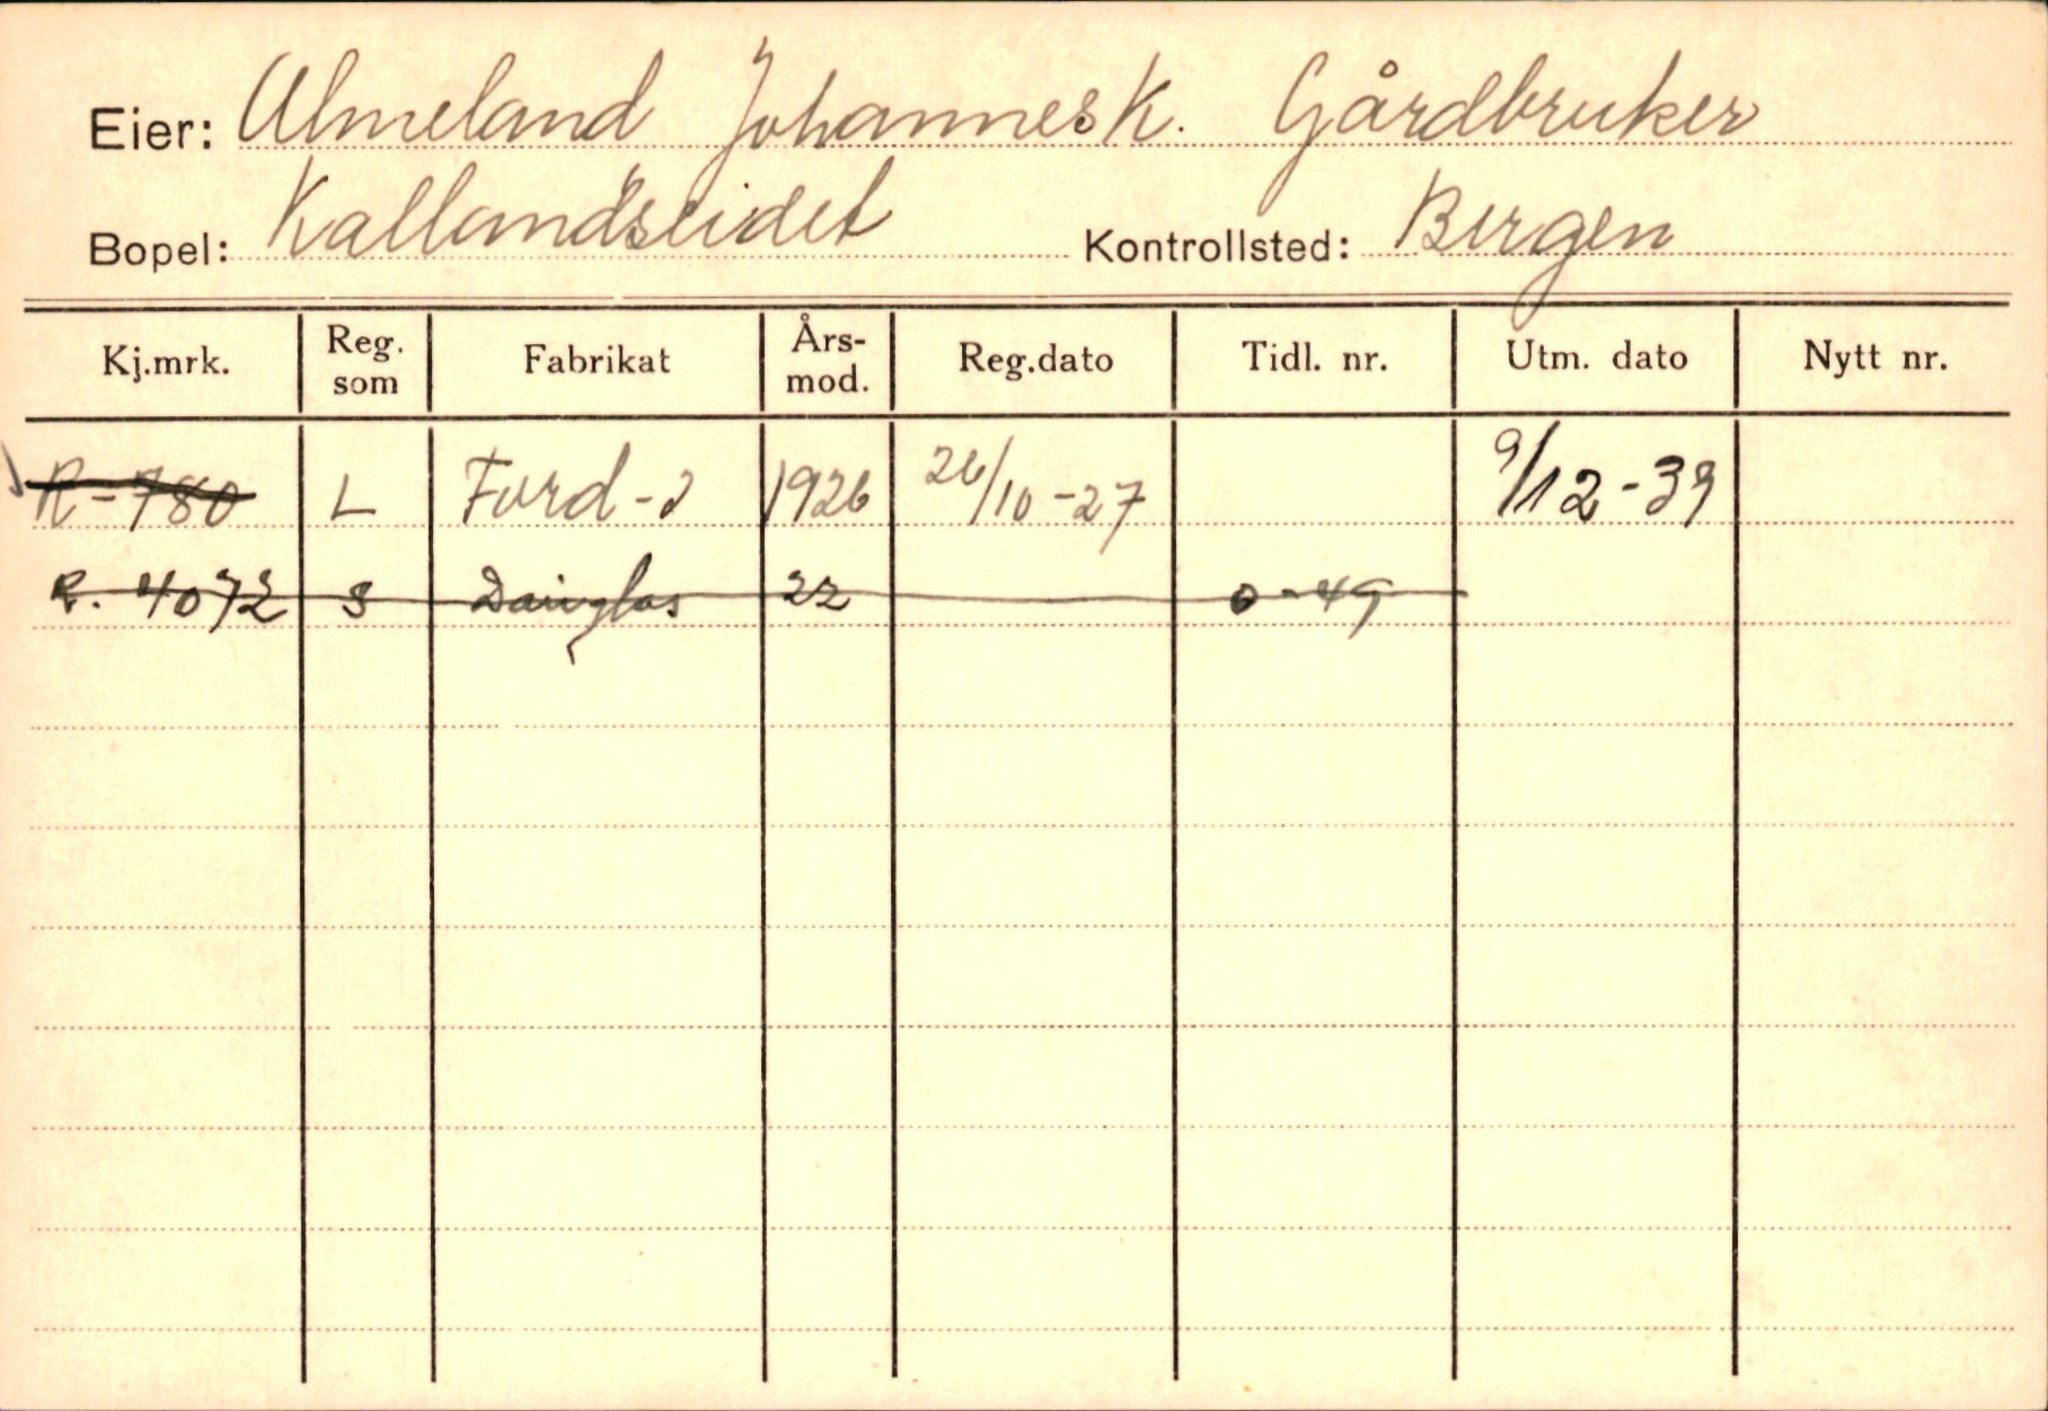 Eier: Almeland Johannes K. Gårdbruker
Bopel: Kallandseidet Kontrollsted: Bergen
Kj.mrk. Reg. som Fabrikat Års-mod. Reg.dato Tidl. nr. Utm. dato Nytt nr.
R-780 L Ford 1926 26/10-27 9/12-39
R. 4072 S Dauglas 22 0-49